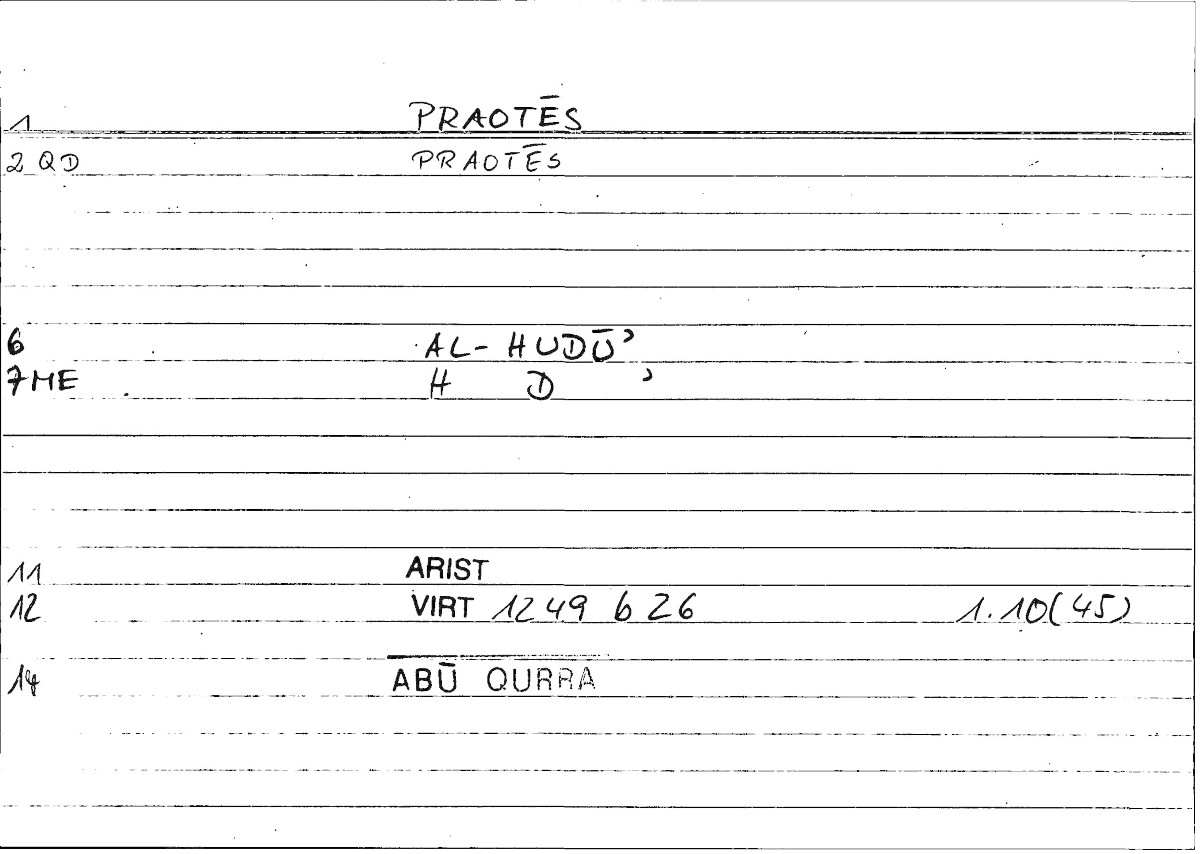 1 PRAOTĒS
2 QD PRAOTĒS
6 AL-HUDŪʾ
7ME H D ʾ
11 ARIST
12 VIRT 1249 b 26 1.10(45)
14 ABŪ QURRA